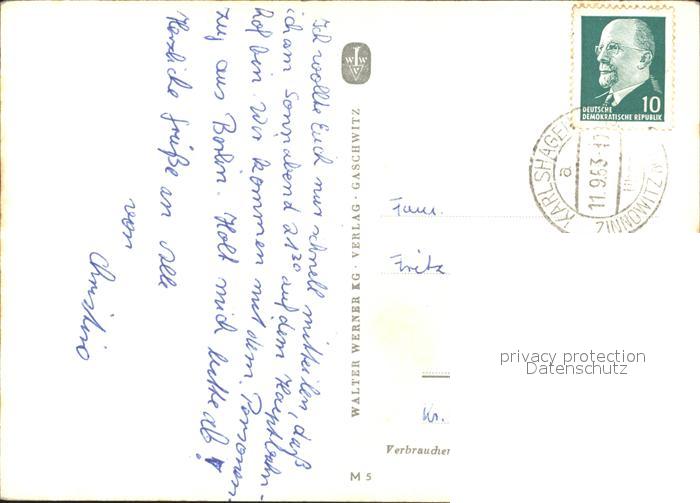 Ich wollte Euch nur schnell mitteilen, daß
ich am Sonnabend 21³⁰ auf dem Hauptbahn-
hof bin. Wir kommen mit dem Personen-
zug aus Berlin. Holt mich bitte ab!
Herzliche Grüße an Alle
von
Christine
WALTER WERNER KG · VERLAG · GASCHWITZ
DEUTSCHE
DEMOKRATISCHE REPUBLIK
10
KARLSHAGEN
a
11.9.63-17
Fam.
Fritz
privacy protection
Datenschutz
Kr.
Verbraucher
M 5